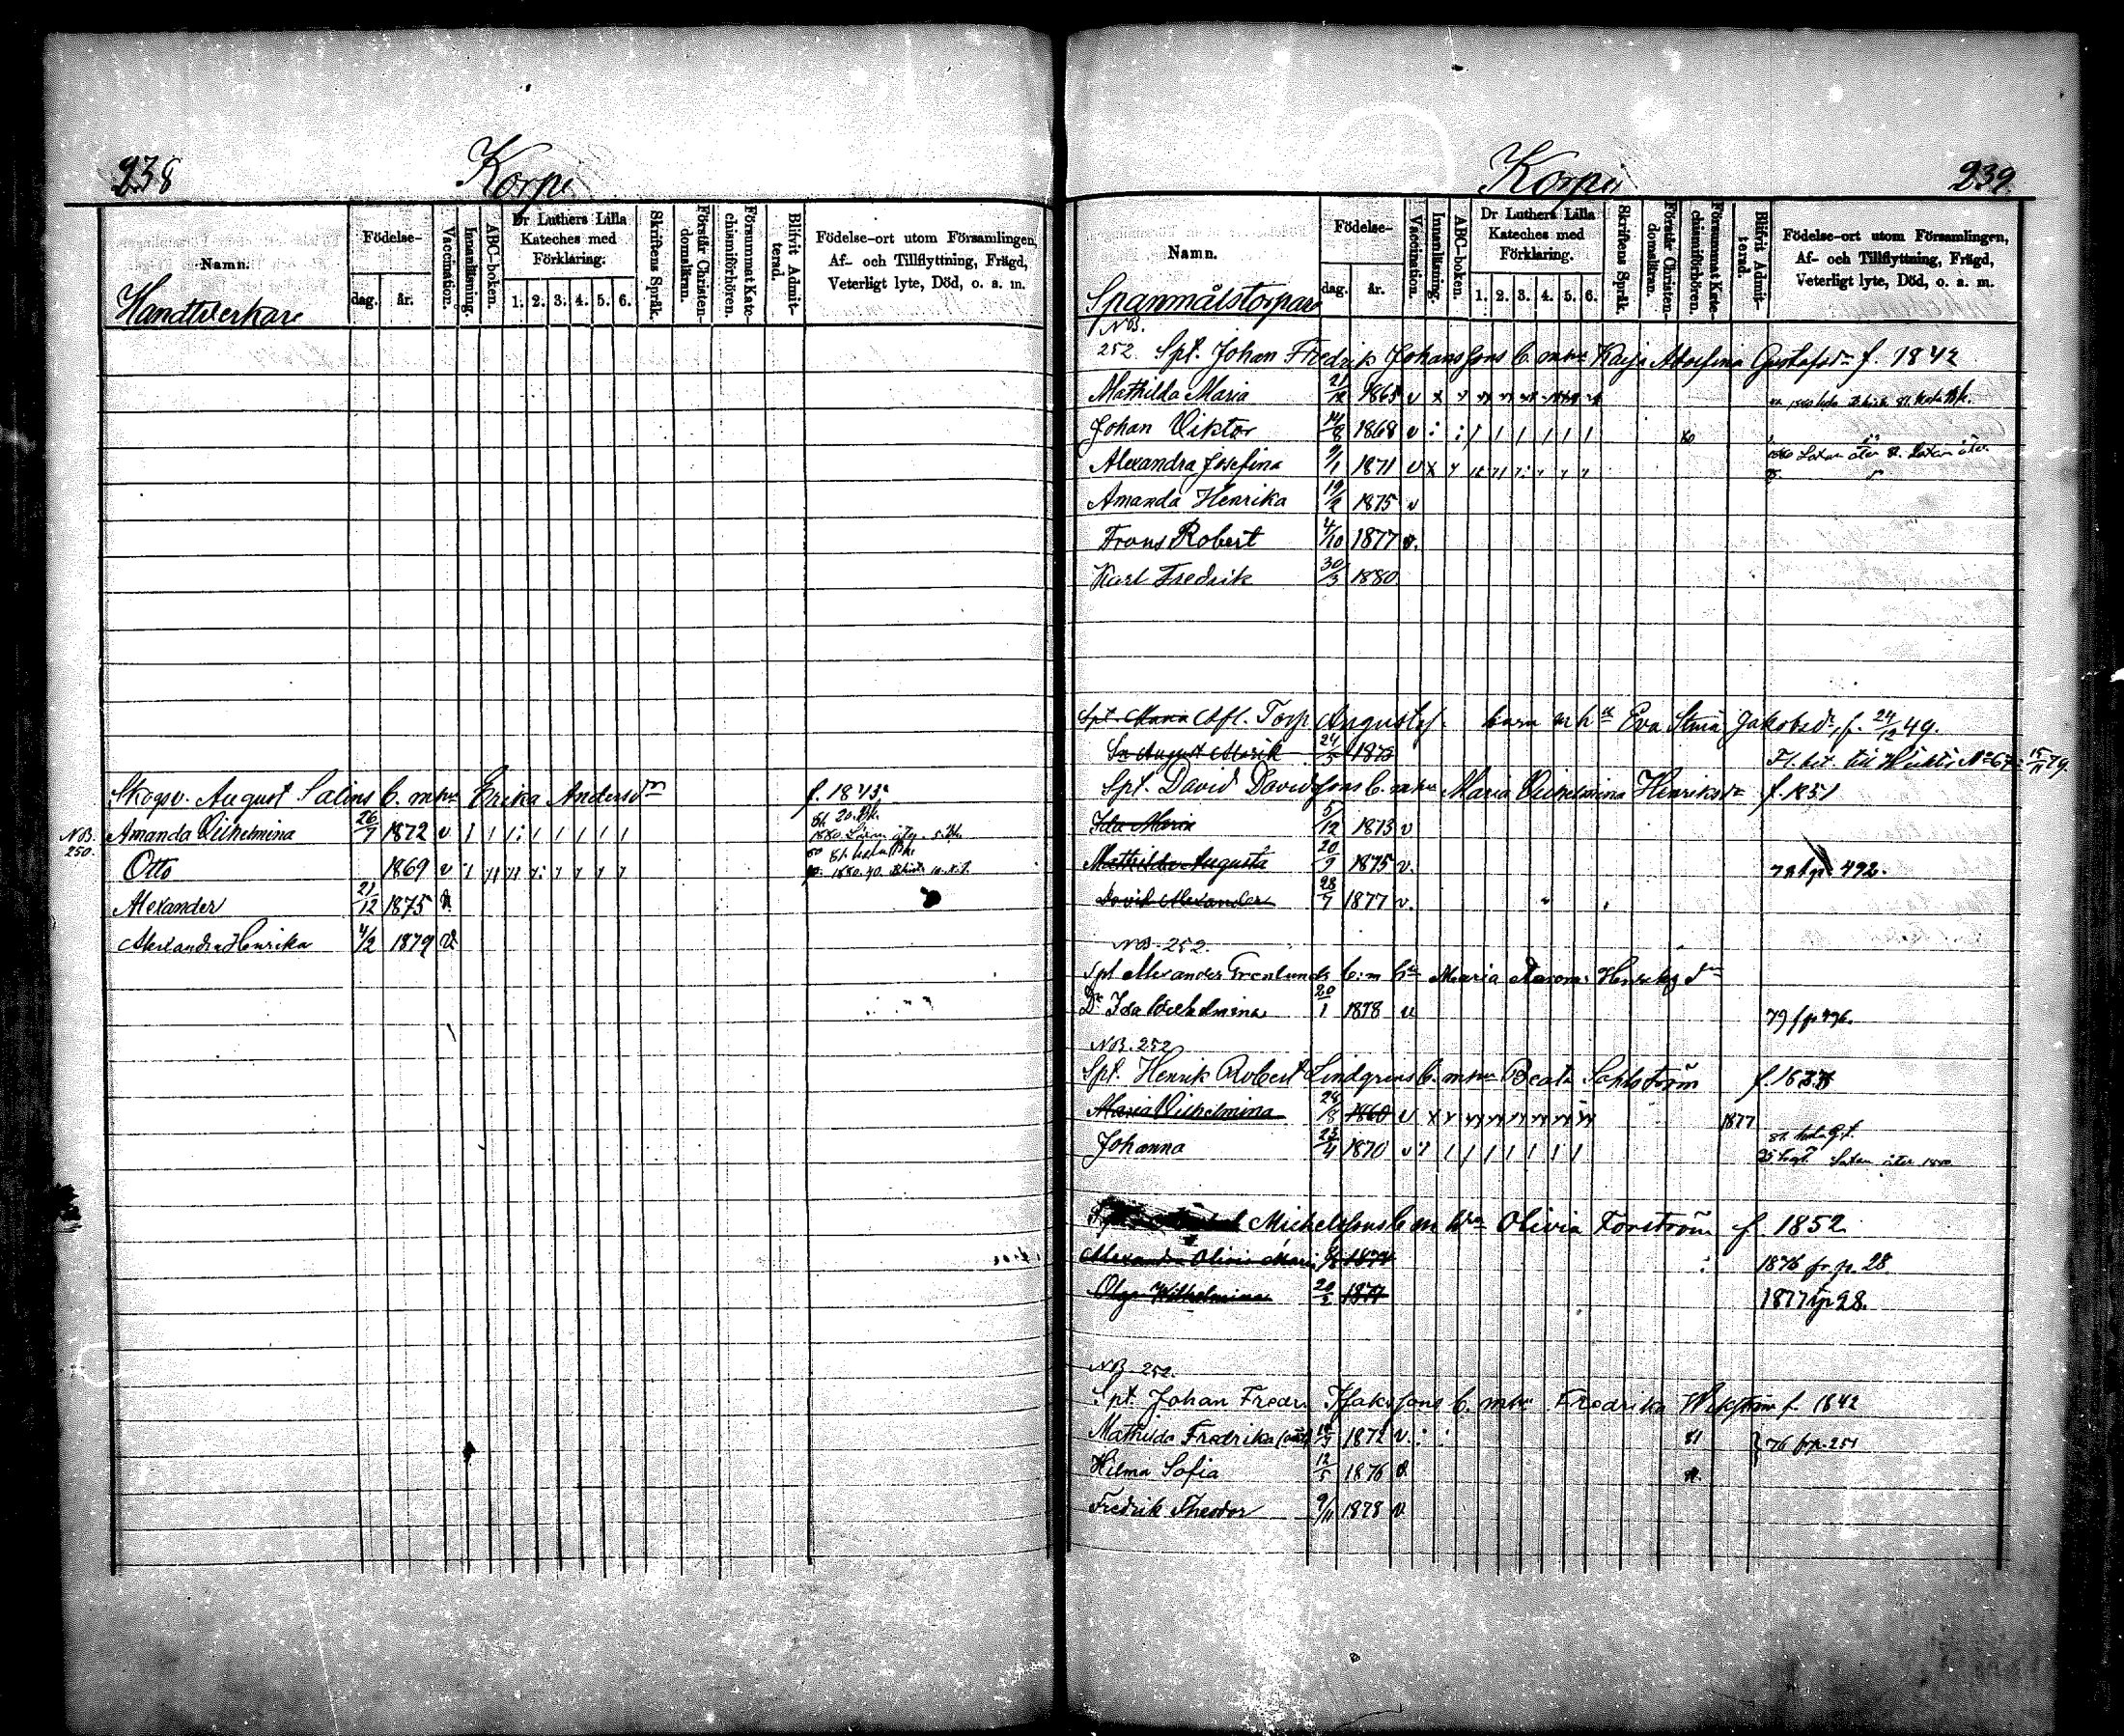 238
Korpi
Namn.
Födelse-
dag.
år.
Vaccination.
Innanläsning.
ABC-boken.
Dr Luthers Lilla Kateches med Förklaring.
1. 2. 3. 4. 5. 6.
Skriftens Språk.
Förstår Christendomsläran.
Försummat Katechismiförhören.
Blifvit Admitterad.
Födelse-ort utom Församlingen,
Af- och Tillflyttning, Frägd,
Veterligt lyte, Död, o. a. m.
Handtverkare
Skogsv. August Salins b. m hu Erika Andersdr f. 1843
NB. 250. Amanda Vilhelmina 26/7 1872 v
Otto 1869 v
Alexander 21/12 1875
Alexandra Henrika 4/2 1879 v
Korpi
239
Namn.
Födelse-
dag.
år.
Vaccination.
Innanläsning.
ABC-boken.
Dr Luthers Lilla Kateches med Förklaring.
1. 2. 3. 4. 5. 6.
Skriftens Språk.
Förstår Christendomsläran.
Försummat Katechismiförhören.
Blifvit Admitterad.
Födelse-ort utom Församlingen,
Af- och Tillflyttning, Frägd,
Veterligt lyte, Död, o. a. m.
Spannmålstorpare
NB.
252. Spt. Johan Fredrik Johanssons b. m hu Kajsa Adolfina Gustafsdr f. 1842
Mathilda Maria 21/12 1865 v
Johan Viktor 14/8 1868 v 80
Alexandra Josefina 9/1 1871 v
Amanda Henrika 19/2 1875 v
Frans Robert 4/10 1877 v.
Karl Fredrik 30/3 1880
Afl. Torp Augusts barn m h Eva Stina Jakobsdr, f. 24/12 49.
Sn August 24/5 1873 Fl. bet. till No 67 15/11 79.
Spt. David Davidssons b. m hu Maria Vilhelmina Henriksdr f. 1851
Ida Maria 5/12 1873 v
Mathilda Augusta 20/9 1875 v. 78 t p 492.
David Alexander 28/7 1877 v.
NB. 252.
Spt Alexander Grenlunds b. m hu Maria Henriksdr
Dr Ida Vilhelmina 20/1 1878 v 79 f p 496.
NB. 252
Spt. Henrik Robert Lindgrens b. m hu Beata Sahlström
Maria Vilhelmina 28/8 1860 v 1877
Johanna 23/4 1870 v
Michelssons b m hu Olivia Forström f. 1852
Alexandra Olivia Maria 1876 fr p. 28.
Olga Wilhelmina 20/2 1877 1877 t p 28.
NB. 252.
Spt. Johan Fredr Isakssons b. m hu Fredrika f. 1842
Mathilda Fredrika 1872 v. 81 76 fr p. 251
Hilma Sofia 12/5 1876
Fredrik Theodor 9/11 1878 v